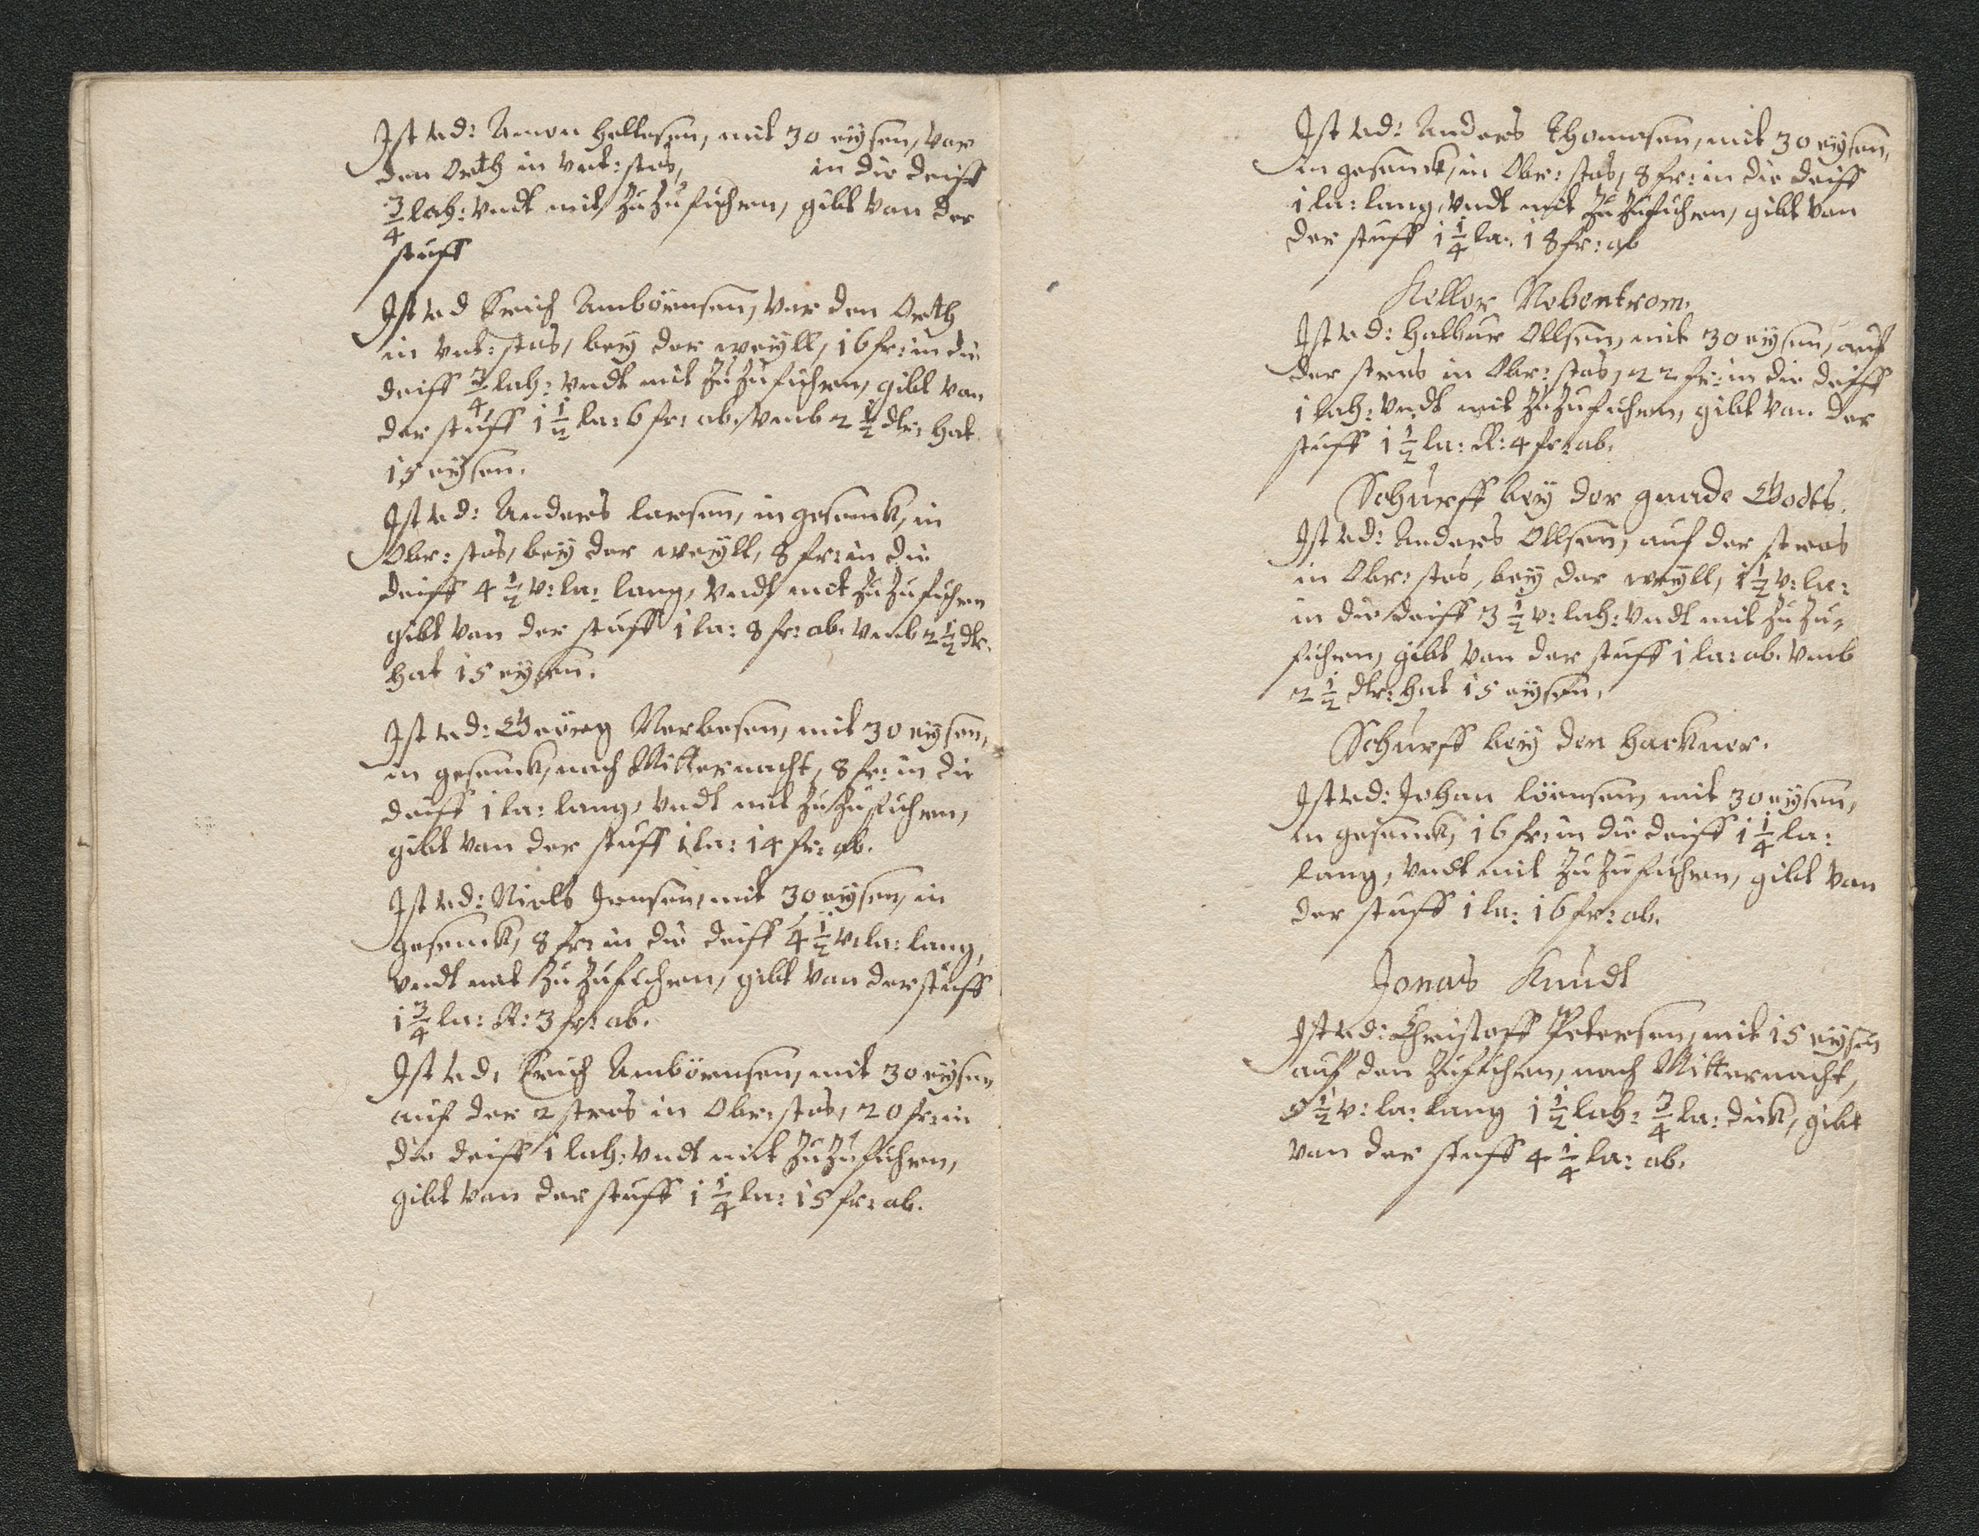 Ist ud: Amon Hellesen, mit 30 eysen, var
den Orth in Unt: stos, in die deiff
3/4 lah: Undt mit Zu Zufuhren, gibt van der
stuff
Ist ud Erich Ambörnsen, var den Orth
in Unt: stos, bey der weyll, 16 fr: in die
deiff 3/4 lah: Undt mit Zu Zufuhren, gibt van
der stuff 1 1/2 la: 6 fr: ab. Vmb 2 1/2 dlr: hat
15 eysen.
Ist ud: Anders Larsen, in gesenck, in
Obr: stos, bey der weyll, 8 fr: in die
deiff 4 1/2 v: la: lang, Undt mit Zu Zufuhren
gibt van der stuff 1 la: 8 fr: ab. Vmb 2 1/2 dlr.
hat 15 eysen.
Ist ud: Georg Nerbesen, mit 30 eysen,
in gesenck, nach Mitternacht, 8 fr: in die
deiff 1 la: lang, Undt mit Zu Zufuhren,
gibt van der stuff 1 la: 14 fr: ab.
Ist ud: Niels Jensen, mit 30 eysen, in
gesenck, 8 fr: in die deiff 4 1/2 v: la: lang,
Undt mit Zu Zufuhren, gibt van der stuff
1 3/4 la: R: 3 fr: ab.
Ist ud, Erich Ambörnsen, mit 30 eysen
auf der 2 stros in Obr: stos, 20 fr: in
die deiff 1 lah: Undt mit Zu Zufuhren,
gibt van der stuff 1 1/4 la: 15 fr: ab.
Ist ud: Anders Thomasen, mit 30 eysen,
in gesenck, in Obr: stos, 8 fr: in die deiff
1 la: lang, Undt mit Zu Zufuhren, gibt van
der stuff 1 1/4 la: 18 fr: ab
Keller Nebentrom.
Ist ud: Halbur Ollsen, mit 30 eysen, auf
der stros in Obr: stos, 22 fr: in die deiff
1 lah: Undt mit Zu Zufuhren, gibt van der
stuff 1 1/2 la: R: 4 fr: ab.
Schurff bey der gnade Godts.
Ist ud: Anders Ollsen, auf der stros
in Obr: stos, bey der weyll, 1 1/2 v: la:
in die deiff 3 1/2 v: lah: Undt mit Zu Zu-
fuhren, gibt van der stuff 1 la: ab. Vmb
2 1/2 dlr: hat 15 eysen.
Schurff bey den Hackner.
Ist ud: Johan Lörnsen, mit 30 eysen,
in gesenck, 16 fr: in die deiff 1 1/4 la:
lang, Undt mit Zu Zufuhren, gibt van
der stuff 1 la: 16 fr: ab.
Jonas Kundt
Ist ud: Christoff Petersen, mit 15 eysen
auf den Zufuhren, nach Mitternacht,
5 1/2 v: la: lang 1 1/2 lah: 3/4 la: dick, gibt
van der stuff 4 1/4 la: ab.